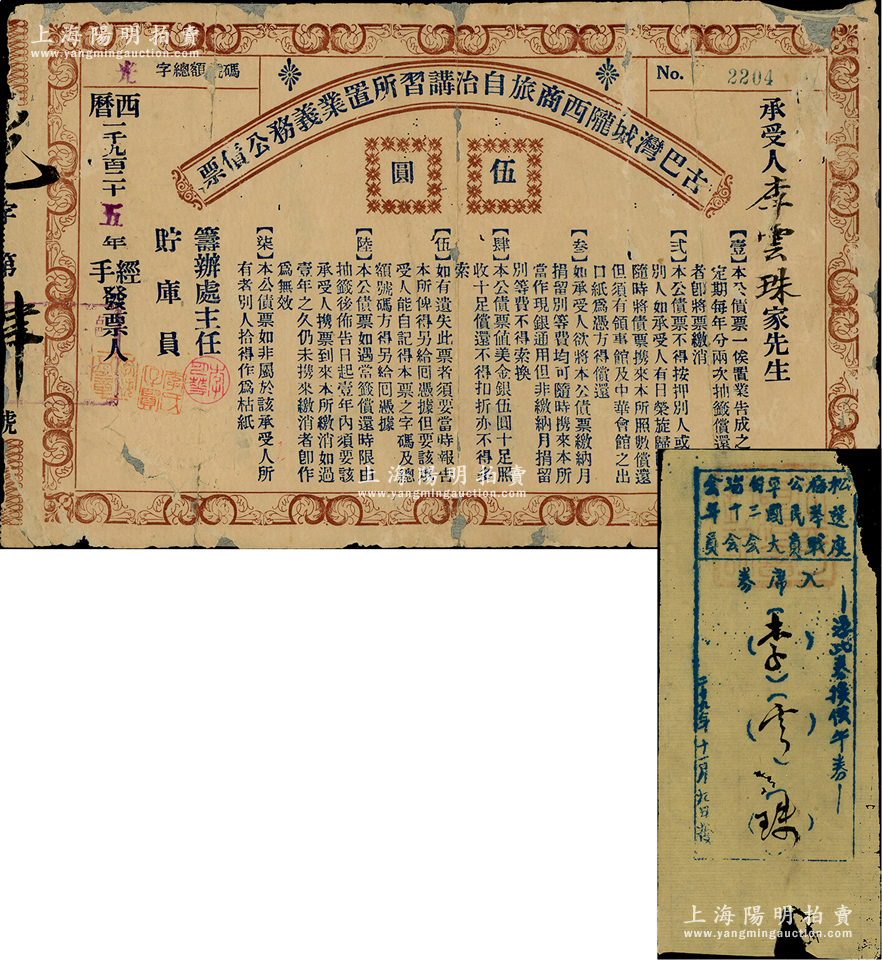 上海陽明拍賣
www.yangmingauction.com
上海陽明拍賣
www.yangmingauction.com
No. 2204
字總額 碼
光
古巴灣城隴西商旅自治講習所置業義務公債票
伍圓
承受人李雲珠家先生
【壹】本公債票一俟置業告成之
定期每年分兩次抽籤償還
者卽將票繳消
【弍】本公債票不得按押別人或
別人如承受人有日榮旋歸
隨時將債票携來本所照數償還
但須有領事館及中華會館之出
口紙爲憑方得償還
【叁】如承受人欲將本公債票繳納月
捐留別等費均可隨時携來本所
當作現銀通用但非繳納月捐留
別等費不得索換
【肆】本公債票値美金銀伍圓十足照
收十足償還不得扣折亦不得多
索
【伍】如有遺失此票者須要當時報吿
本所俾得另給囘憑據但要該承
受人能自記得本票之字碼及總
額號碼方得另給囘憑據
【陸】本公債票如遇當籤償還時限由
抽籤後佈告日起壹年內須要該
承受人携票到來本所繳消如過
壹年之久仍未携來繳消者卽作
爲無效
【柒】本公債票如非屬於該承受人所
有者別人拾得作爲枯紙
籌辦處主任
貯庫員
經手發票人
西曆一千九百二十五年
光字第肆號
上海陽明拍賣
www.yangmingauction.com
入席券
李雲珠
—憑此券換領午券—
二十九年十一月九日發
上海陽明拍賣
www.yangmingauction.com